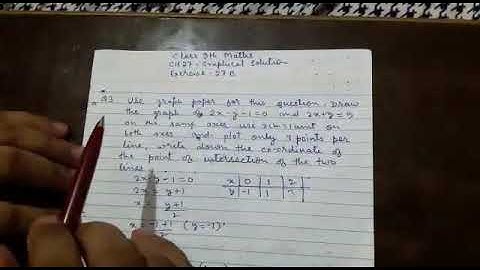 Class 9th Maths
Ch 27 - Graphical Solution
Exercise - 27 B
Q3. Use graph paper for this question. Draw
the graph of 2x - y - 1 = 0 and 2x + y = 9
on the same axes use 2cm = 1 unit on
both axes and plot only 3 points per
line, write down the co-ordinate of
the point of intersection of the two
lines
2x - y - 1 = 0
2x = y + 1
x = y + 1
2
x = -1 + 1 (y = -1)
2
x | 0 | 1 | 2
y | -1 | 1 | 3